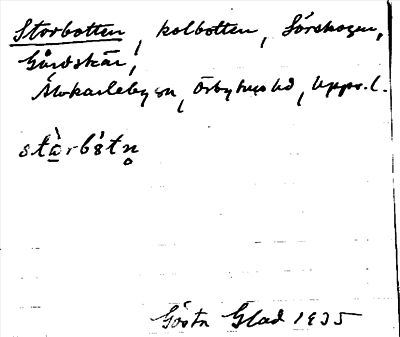 Storbotten, kolbotten, Sörskogen,
Gårdskär,
Älvkarleby sn, Örbyhus hd, Upps. l.
stὰ̱rbòtn̥
Gösta Glad 1935